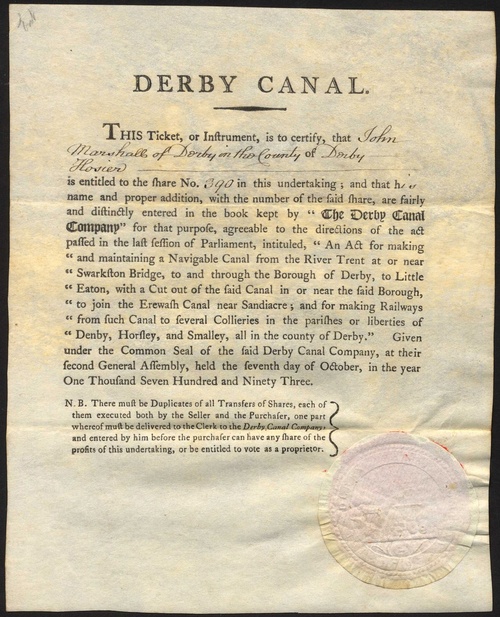 DERBY CANAL.
THIS Ticket, or Inſtrument, is to certify, that John
Marshall of Derby in the County of Derby
Hosier
is entitled to the ſhare No. 390 in this undertaking; and that his
name and proper addition, with the number of the ſaid ſhare, are fairly
and diſtinctly entered in the book kept by “ The Derby Canal
Company” for that purpoſe, agreeable to the directions of the act
paſſed in the laſt ſeſſion of Parliament, intituled, “ An Act for making
“ and maintaining a Navigable Canal from the River Trent at or near
“ Swarkſton Bridge, to and through the Borough of Derby, to Little
“ Eaton, with a Cut out of the ſaid Canal in or near the ſaid Borough,
“ to join the Erewaſh Canal near Sandiacre; and for making Railways
“ from ſuch Canal to ſeveral Collieries in the pariſhes or liberties of
“ Denby, Horſley, and Smalley, all in the county of Derby.” Given
under the Common Seal of the ſaid Derby Canal Company, at their
ſecond General Aſſembly, held the ſeventh day of October, in the year
One Thouſand Seven Hundred and Ninety Three.
N. B. There muſt be Duplicates of all Transfers of Shares, each of
them executed both by the Seller and the Purchaſer, one part
whereof muſt be delivered to the Clerk to the Derby Canal Company,
and entered by him before the purchaſer can have any ſhare of the
profits of this undertaking, or be entitled to vote as a proprietor.